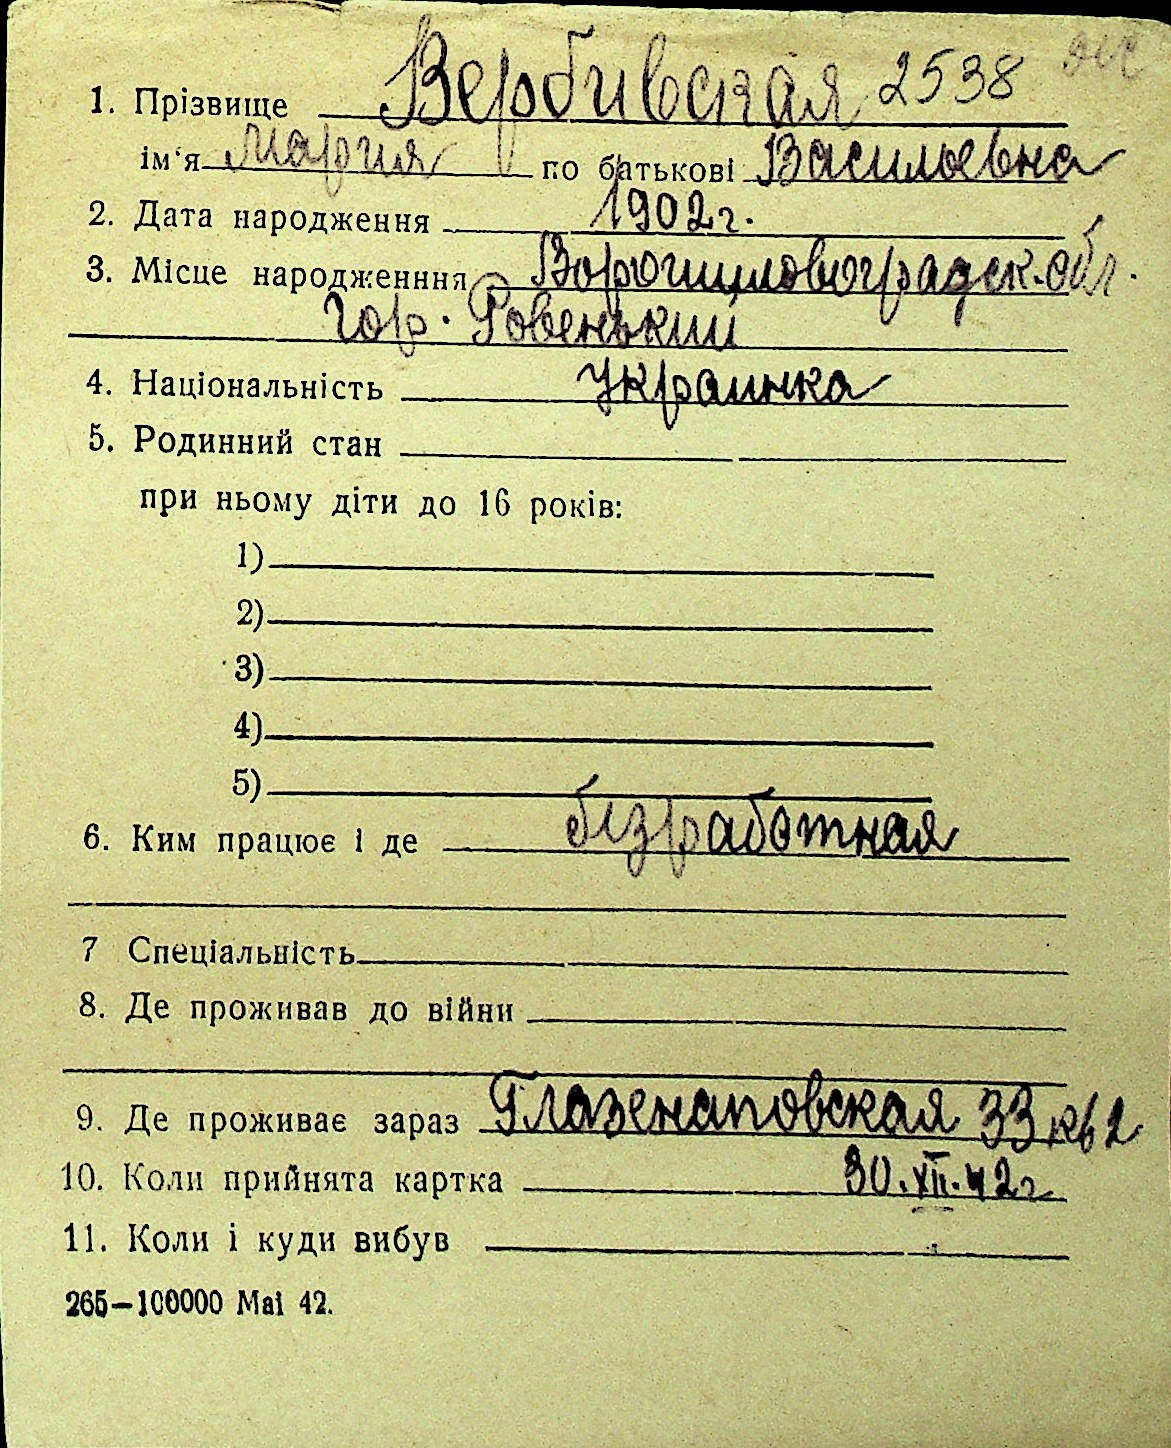 1. Прізвище Вербивская 2538
ім'я Мария по батькові Васильевна
2. Дата народження 1902 г.
3. Місце народженння Ворошиловоградск. обл.
гор. Ровенький
4. Національність Украинка
5. Родинний стан
при ньому діти до 16 років:
1)
2)
3)
4)
5)
6. Ким працює і де безработная
7 Спеціальність
8. Де проживав до війни
9. Де проживає зараз Глазенаповская 33 кв 2
10. Коли прийнята картка 30.XII.42 г
11. Коли і куди вибув
265—100000 Mai 42.